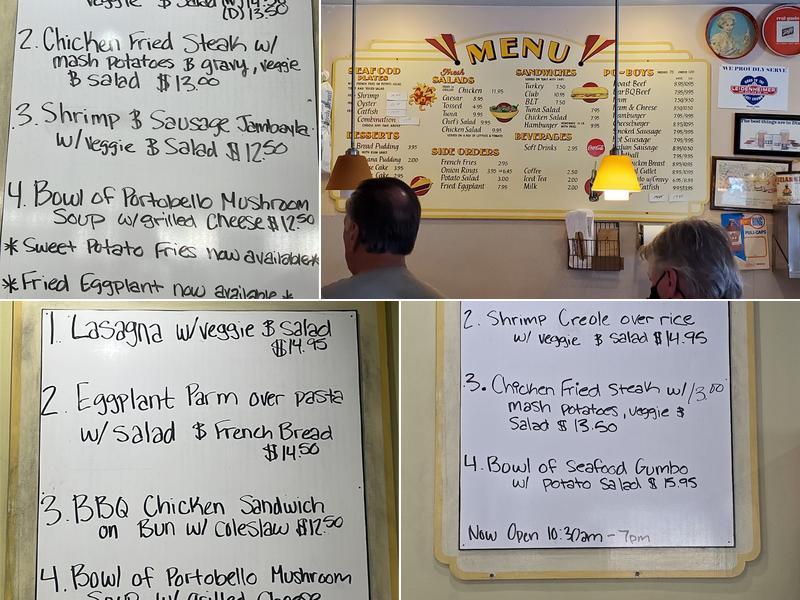 Veggie $ Salad
(D) 13.50
2. Chicken Fried Steak w/
mash Potatoes $ gravy, veggie
$ salad $13.00
3. Shrimp $ Sausage Jambayla
w/veggie $ Salad $12.50
4. Bowl of Portobello Mushroom
Soup w/grilled cheese $12.50
* Sweet Potato Fries now available *
* Fried Eggplant now available *
MENU
SEAFOOD
PLATES
Shrimp
Oyster
Catfish
Combination
DESSERTS
Bread Pudding 3.95
Fresh
SALADS
Chicken 11.95
Caesar
Tossed
Tuna
Chef's Salad
Chicken Salad
SIDE ORDERS
French Fries 2.95
Onion Rings
Potato Salad 3.00
Fried Eggplant 7.95
SANDWICHES
Turkey 7.50
Club
BLT 7.50
Tuna Salad
Chicken Salad
Hamburger
BEVERAGES
Soft Drinks 2.95
Coffee 2.50
Iced Tea 2.00
Milk 2.00
PO-BOYS
Roast Beef
Bar BQ Beef
Ham
Ham & Cheese
Hamburger
Cheeseburger
Hot Sausage
Smoked Sausage
Chicken Breast
Catfish
WE PROUDLY SERVE
LEIDENHEIMER
1. Lasagna w/veggie $ Salad
$14.95
2. Eggplant Parm over pasta
w/ salad $ French Bread
$14.50
3. BBQ Chicken Sandwich
on Bun w/ Coleslaw $12.50
4. Bowl of Portobello Mushroom
Soup w/ grilled Cheese
2. Shrimp Creole over rice
w/ veggie $ Salad $14.95
3. Chicken Fried Steak w/ 13.00
mash potatoes, veggie $
Salad $13.50
4. Bowl of Seafood Gumbo
w/ potato Salad $15.95
Now Open 10:30am - 7pm